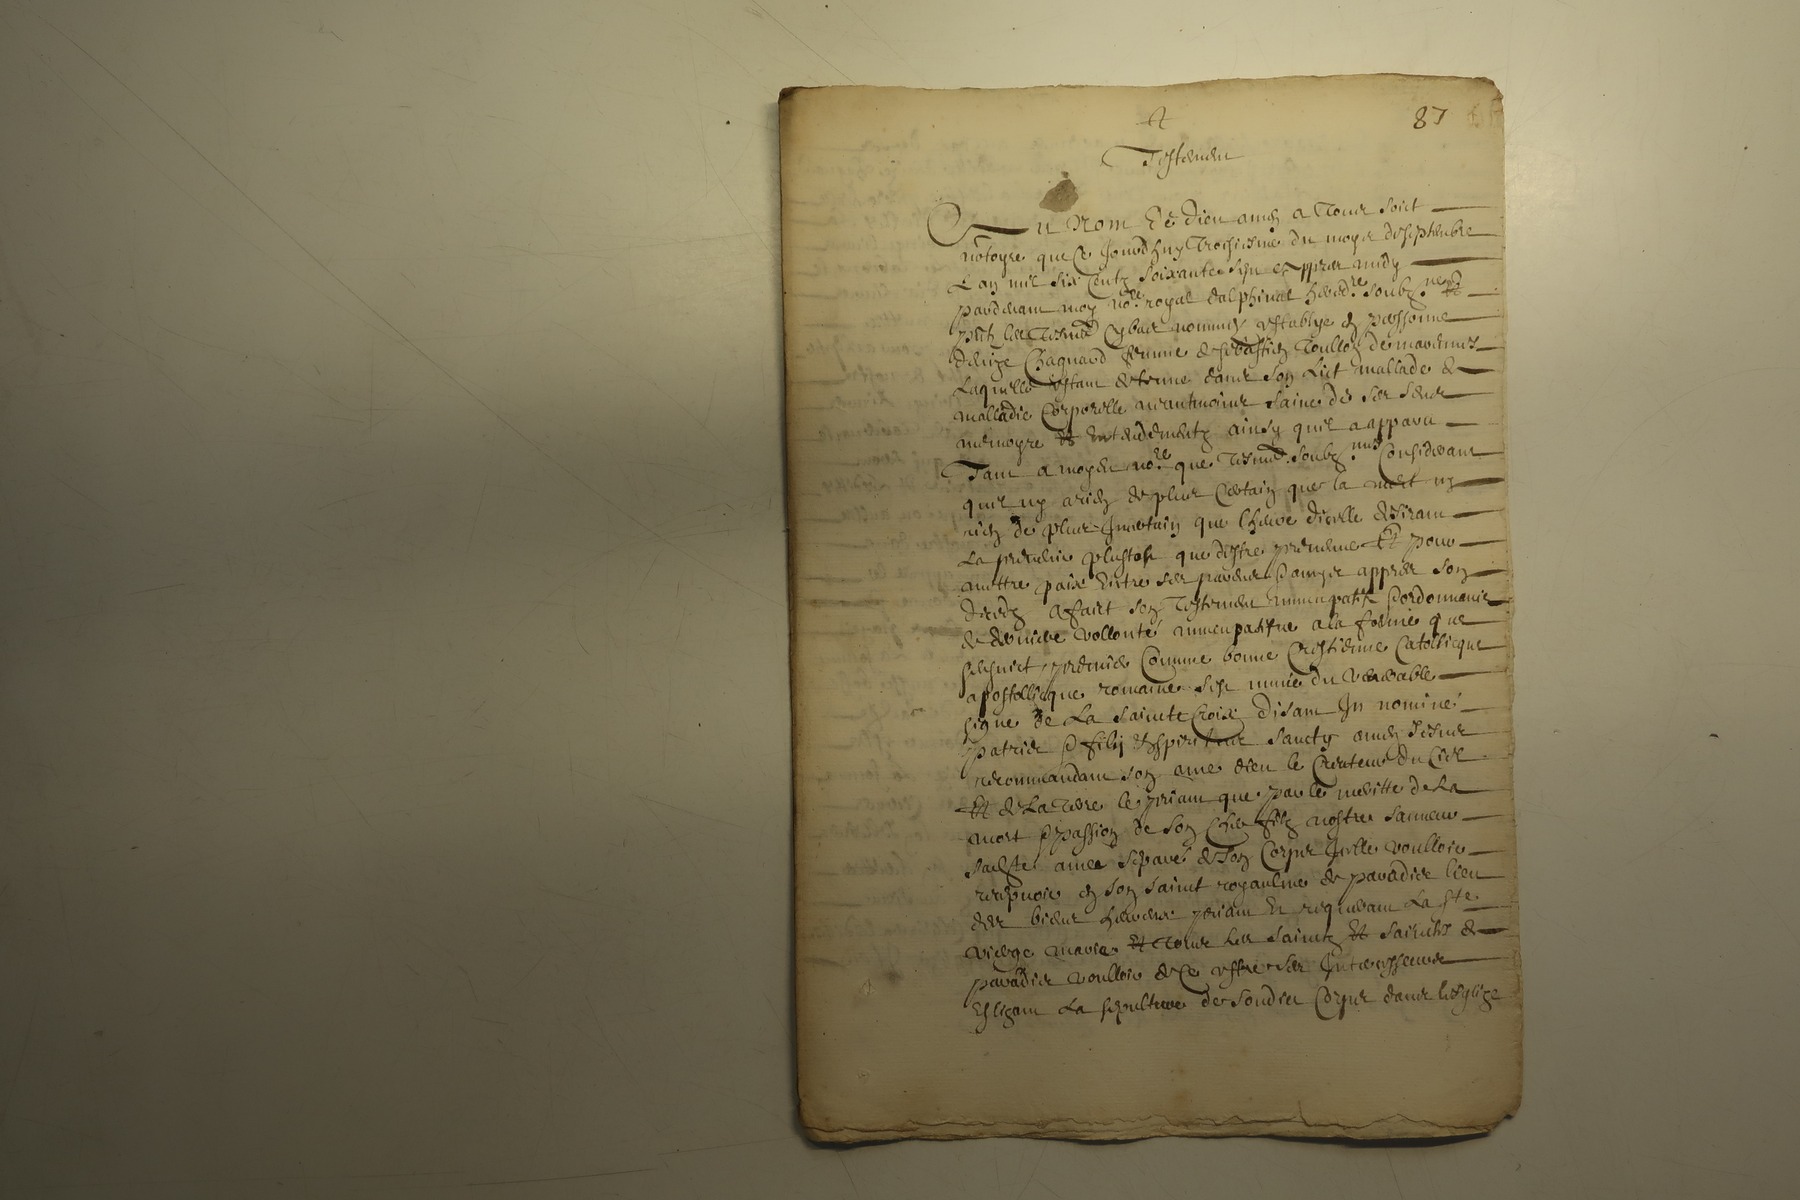 87
Testement
Au Nom de dieu amen a Tous soict
notoyre que Ce Jourdhuy Troisiesme du moys de septembre
L an mil six Centz soixante sept appres midy
pardevant moy no.re royal dalphinal hered.re soubz.né et
pntz les Tesmoingz Cybas nommés establye en personne
Chagnard femme de sebastien Toullon de
Laquelle estant detenue dans son Lict mallade de
malladie Corporelle neantmoins saine de ses sens
memoyre et Entendementz ainsy quil a apparu
Tant a moydit no.re que Tesmoingz soubz.nés Considerant
quil ny a rien de plus Certain que la mort ny
rien de plus Incertain que lheure dicelle desirant
La prevenir plustost que destre prevenue Et pour
mettre paix Entre ses parens & amys appres son
decedz a faict son Testement nuncupatif & ordonnance
de derniere vollonté nuncupative a la forme que
sensuict premier Comme bonne Crestienne Catollicque
apostollicque romaine sest munie du venerable
signe de La sainte Croix disant In nominé
patris & filij & spiritus sancty amen Jesus
recommandant son ame dieu le Createur du Ciel
Et de La Terre le priant que par le meritte de La
mort & passion de son Cher filz nostre sauveur
sadite amee separé de son Corps Icelle voulloir
recepvoir en son saint royaulme de paradis lieu
des biens heureux priant En requerant La ste
vierge marie Et Tous les saintz Et saintes de
paradis voulloir de Ce estre ses Intercesseurs
Esligant La sepulture de sondit Corps dans lesglize